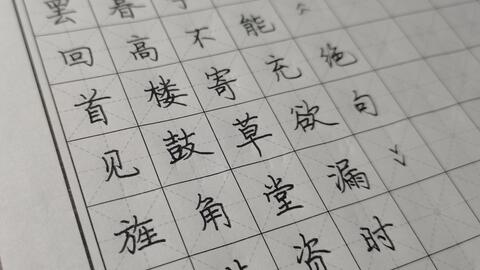 罢回首见旌
暮高楼鼓角
不寄草堂资
能忘欲漏时
︿绝句﹀